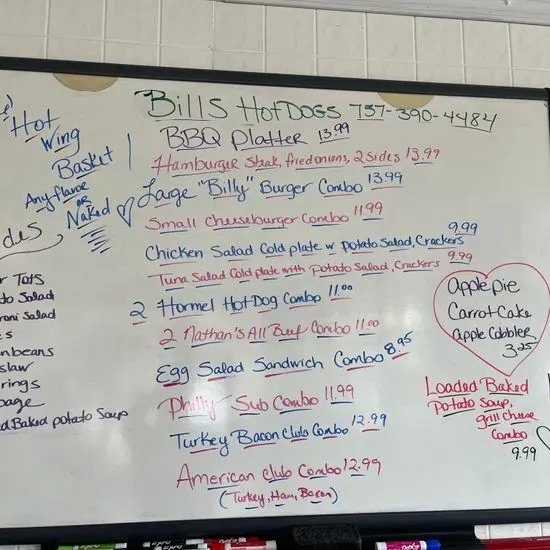 Hot
Wing
Basket
Any flavor
or
Naked
Tots
Salad
Salad
slaw
rings
Baked potato Soup
Bills HotDogs 757-390-4484
BBQ Platter 13.99
Hamburger Steak, fried onions, 2 sides 13.99
Large "Billy" Burger Combo 13.99
Small Cheeseburger Combo 11.99
Chicken Salad Cold plate w potato Salad, Crackers 9.99
Tuna Salad Cold plate with potato Salad, Crackers 9.99
2 Hormel HotDog Combo 11.00
2 Nathan's All Beef Combo 11.00
Egg Salad Sandwich Combo 8.95
Philly Sub Combo 11.99
Turkey Bacon Club Combo 12.99
American Club Combo 12.99
(Turkey, Ham, Bacon)
Apple pie
Carrot Cake
Apple Cobbler
3.25
Loaded Baked
Potato Soup,
grill cheese
Combo
9.99
EXPO
EXPO